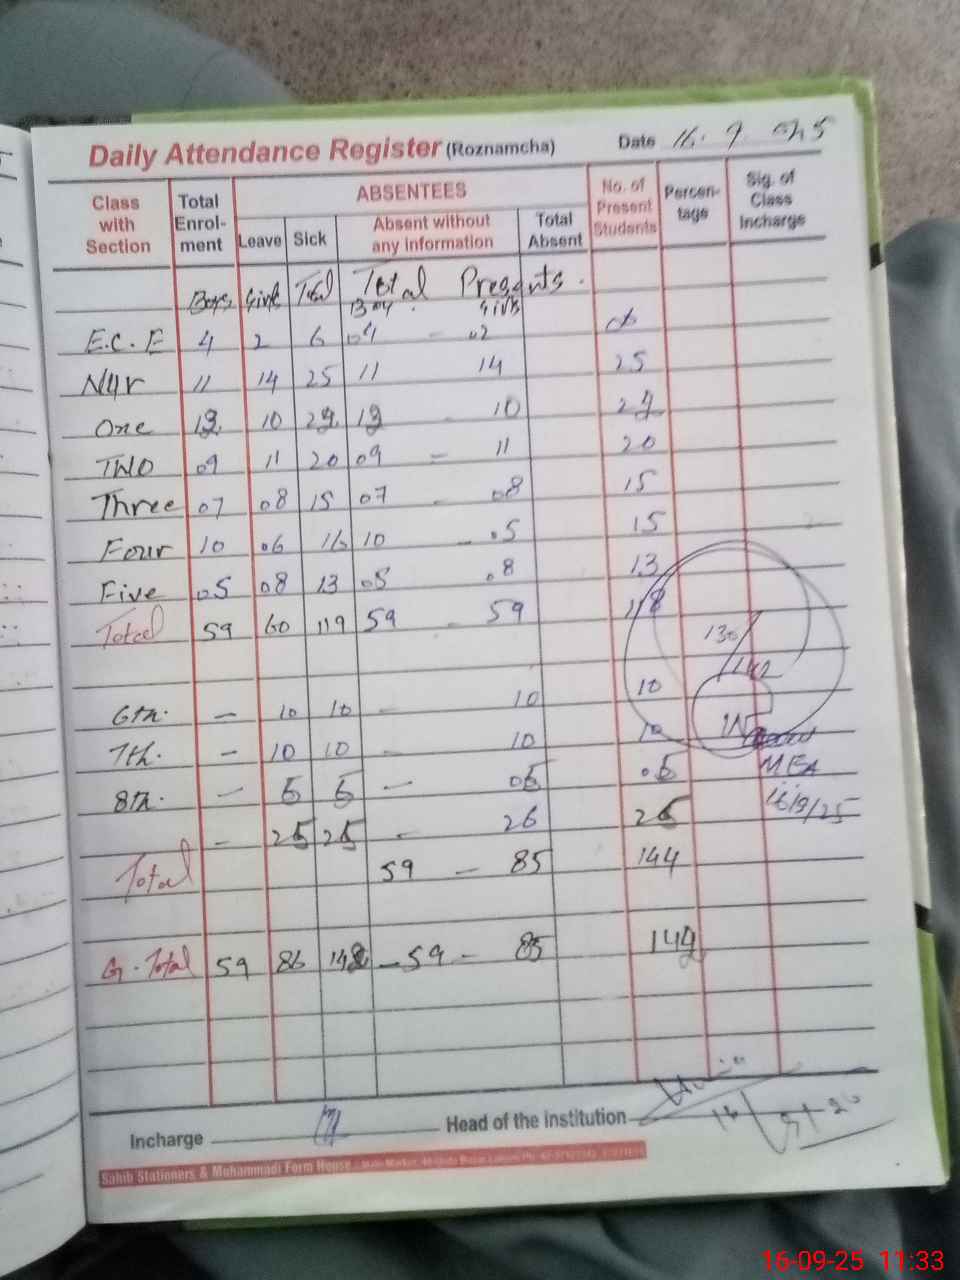 Daily Attendance Register (Roznamcha) Date 16.9.
Class with Section Total Enrol-ment ABSENTEES No. of Present Students Percen-tage Sig. of Class Incharge
Leave Sick Absent without any information Total Absent
Boys Girls Total Total Presents.
Boy. Girls
E.C.E 4 2 6 04 - 02 06
Nur 11 14 25 11 14 25
One 10 10
TWO 09 11 20 09 - 11 20
Three 07 08 15 07 - 08 15
Four 10 06 16 10 - 05 15
Five 05 08 13 05 08 13
Total 59 60 119 59 - 59 118
130/142
6th. - 10 10 - 10 10
7th. - 10 10 - 10 10
8th. - -
MEA
16/9/25
- - 26
Total 59 - 85 144
G.Total 59 86 - 59 - 85
Incharge Head of the institution
Sahib Stationers & Mohammadi Form House
16-09-25 11:33